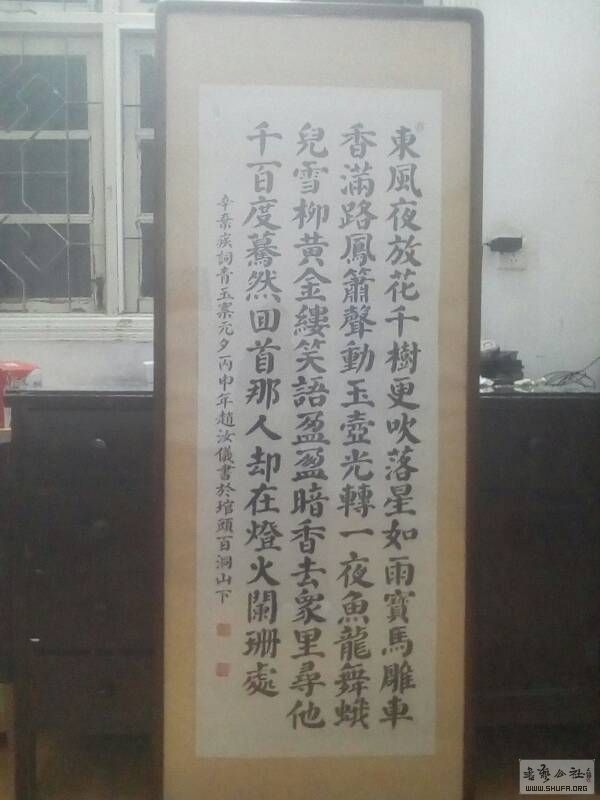 東風夜放花千樹更吹落星如雨寶馬雕車
香滿路鳳簫聲動玉壺光轉一夜魚龍舞蛾
兒雪柳黃金縷笑語盈盈暗香去衆里尋他
千百度驀然回首那人却在燈火闌珊處
辛棄疾詞青玉案元夕丙申年趙汝儀書於琯頭百洞山下
書藝公社
WWW.SHUFA.ORG